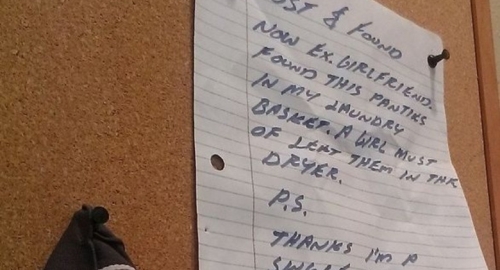 LOST & FOUND
NOW EX. GIRLFRIEND.
FOUND THIS PANTIES
IN MY LAUNDRY
BASKET. A GIRL MUST
OF LEFT THEM IN THE
DRYER.
P.S.
THANKS I'M A
SINGLE